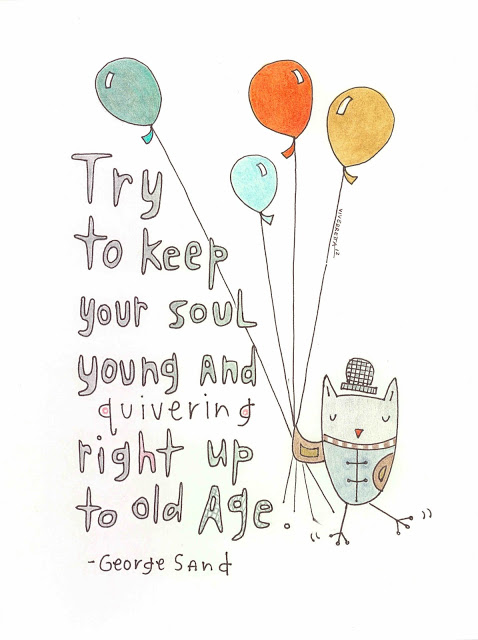 Try
to keep
your soul
young And
quivering
right up
to old Age.
-George Sand